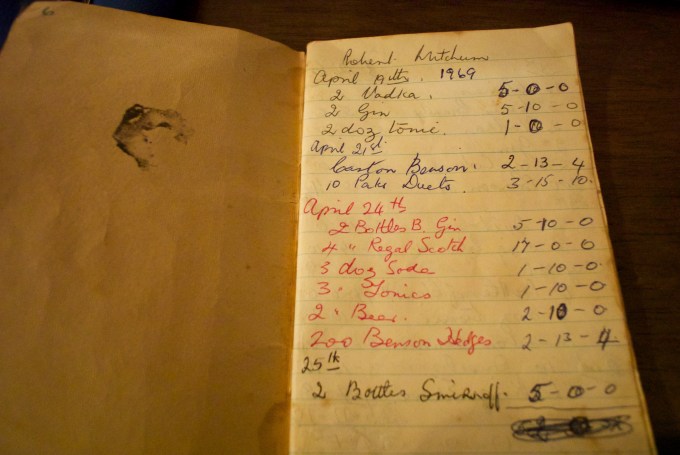 6
Robert Mitchum
April 19th. 1969
2 Vadka. 5-0-0
2 Gin 5-10-0
2 doz tonic. 1-0-0
April 21st.
Carton Benson. 2-13-4
10 Paks Duets. 3-15-10.
April 24th
2 Bottles B. Gin 5-10-0
4 " Regal Scotch 17-0-0
3 doz Soda 1-10-0.
3 " Tonics 1-10-0
2 " Beer. 2-10-0
200 Benson Hedges 2-13-4
25th
2 Bottles Smirnoff. 5-0-0